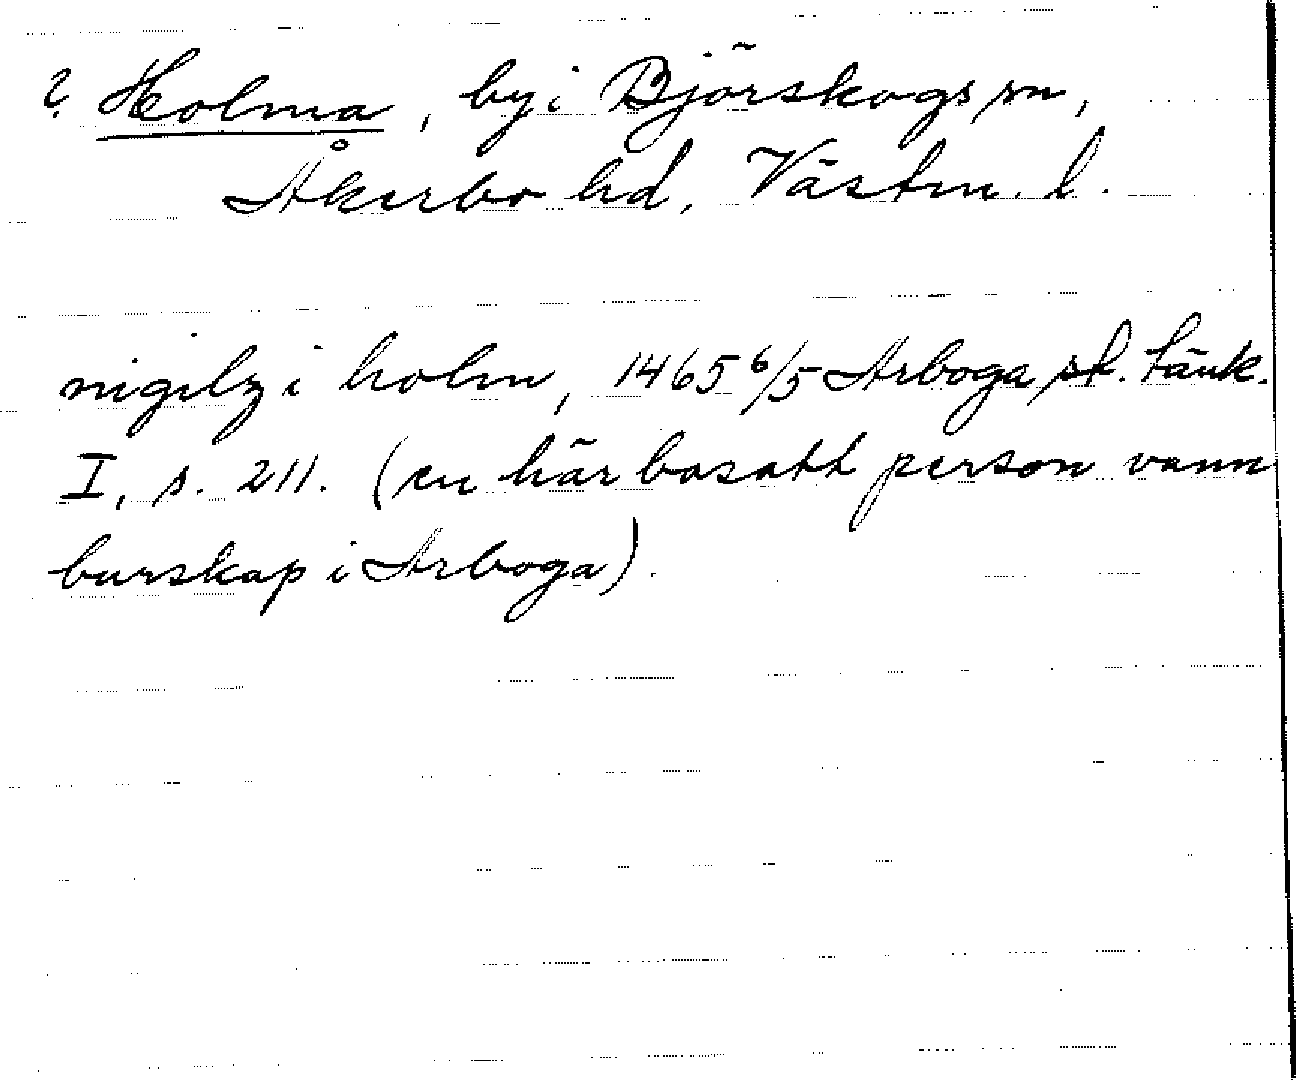 ? Holma, by i Björskogs sn,
Åkerbo hd, Västm. l.
nigilz i holm, 1465 6/5 Arboga st. tänk.
I, s. 211. (en här bosatt person vann
burskap i Arboga).